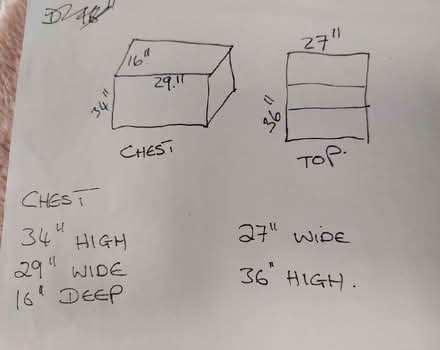 16"
29."
34"
CHEST
27"
36"
TOP.
CHEST
34" HIGH
29" WIDE
16" DEEP
27" WIDE
36" HIGH.